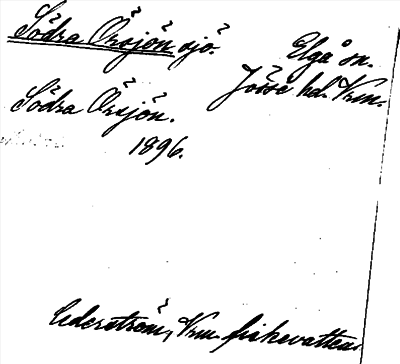 Södra Örsjön sjö. Elgå sn.
Jösse hd. Vrm.
Södra Örsjön.
1896.
Cederström, Vrm. fiskevatten